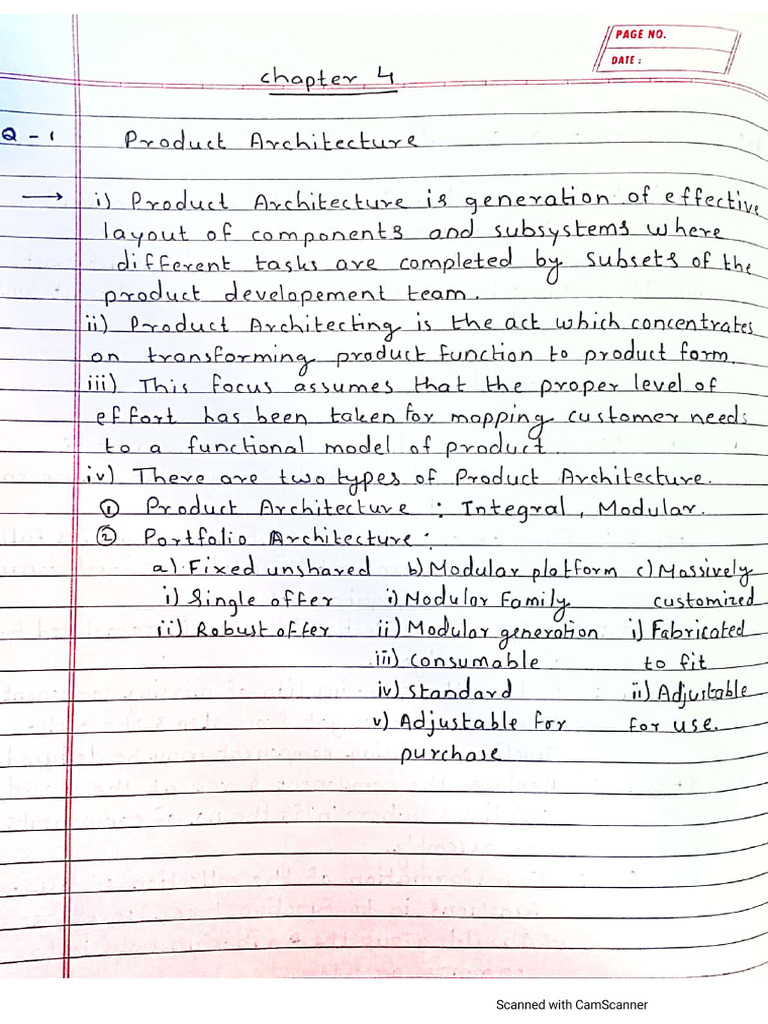 PAGE NO.
DATE :
Chapter 4
Q - 1 Product Architecture
→ i) Product Architecture is generation of effective
layout of components and subsystems where
different tasks are completed by subsets of the
product developement team.
ii) Product Architecting is the act which concentrates
on transforming product function to product form.
iii) This focus assumes that the proper level of
effort has been taken for mapping customer needs
to a functional model of product.
iv) There are two types of Product Architecture.
① Product Architecture : Integral, Modular.
② Portfolio Architecture :
a) Fixed unshared b) Modular platform c) Massively
i) Single offer i) Modular Family customized
ii) Robust offer ii) Modular generation i) Fabricated
iii) consumable to fit
iv) standard ii) Adjustable
v) Adjustable for for use.
purchase
Scanned with CamScanner